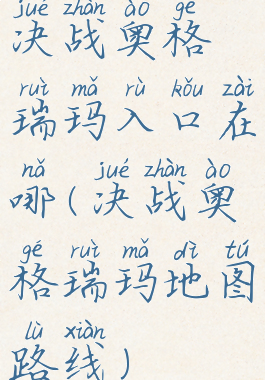 jué zhàn ào gé
决战奥格
ruì mǎ rù kǒu zài
瑞玛入口在
nǎ jué zhàn ào
哪(决战奥
gé ruì mǎ dì tú
格瑞玛地图
lù xiàn
路线)